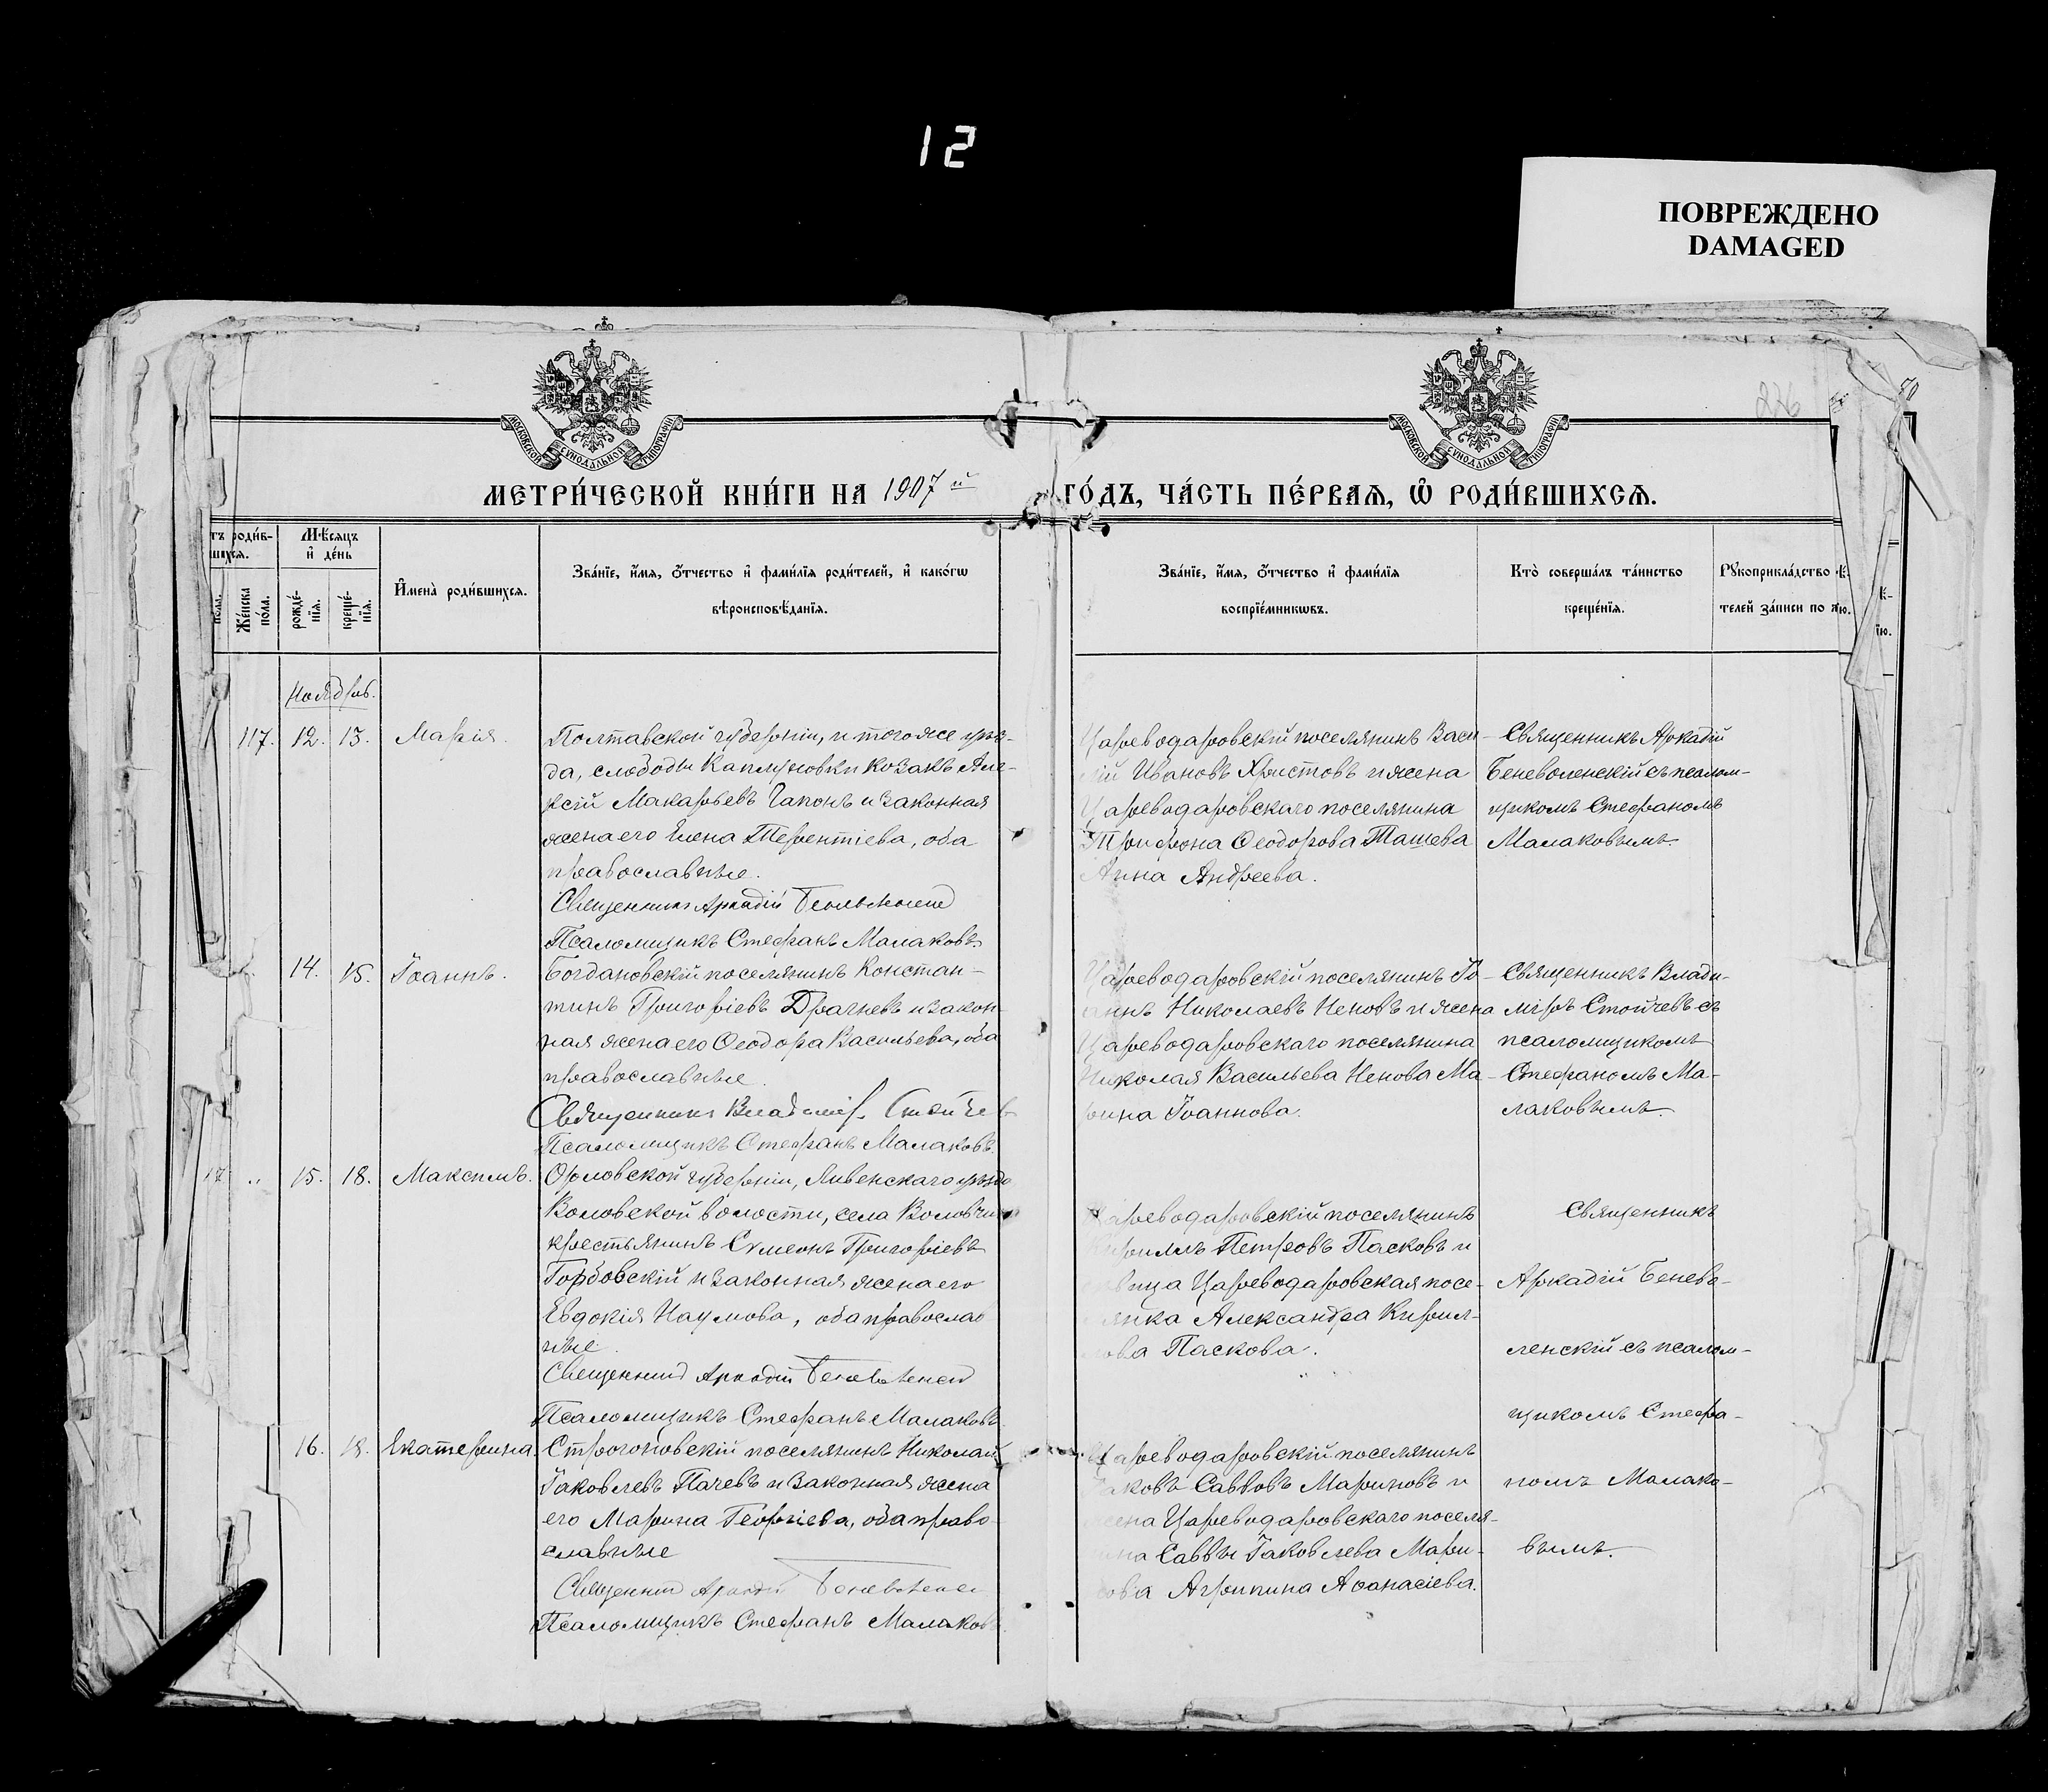 12
ПОВРЕЖДЕНО
DAMAGED
226
50
МОСКОВСКОЙ СУНОДАЛЬНОЙ ТИПОГРАФІИ
МОСКОВСКОЙ СУНОДАЛЬНОЙ ТИПОГРАФІИ
МЕТРИ́ЧЕСКОЙ КНИ́ГИ НА 1907 й
ГО́ДЪ, ЧА́СТЬ ПЕ́РВАѦ, Ѡ҆ РОДИ́ВШИХСѦ.
тъ роди́в-
шихсѧ.
Мѣ́сѧцъ
и҆ де́нь
пола.
Же́нска
по́ла.
рожде́-
нїѧ.
креще́-
нїѧ.
И҆мена̀ роди́вшихсѧ.
Зва́нїе, и҆́мѧ, ѻ҆́тчество и҆ фами́лїѧ роди́телей, и҆ како́гѡ
вѣроисповѣ́данїѧ.
Зва́нїе, и҆́мѧ, ѻ҆́тчество и҆ фами́лїѧ
воспрїе́мникѡвъ.
Кто̀ соверша́лъ та́инство
креще́нїѧ.
Рꙋкоприкла́дство
телей за́писи по
Ноябрь.
117. 12. 13. Марія.
Полтавской губерніи, и того же уѣз-
да, слободы Каплуновки козакъ Але-
ксій Макарьевъ Гапонъ и законная
жена его Елена Терентіева, оба
православные.
Священникъ Аркадій Беневоленскій
Псаломщикъ Стефанъ Малаковъ
Цареводаровскій поселянинъ Васи-
лій Ивановъ Христовъ и жена
Цареводаровскаго поселянина
Трифона Ѳеодорова Ташева
Анна Андреева.
Священникъ Аркадій
Беневоленскій съ псалом-
щикомъ Стефаномъ
Малаковымъ.
14. 15. Іоаннъ.
Богдановскій поселянинъ Констан-
тинъ Григоріевъ Драгневъ и закон-
ная жена его Ѳеодора Васильева, оба
православные.
Священникъ Владиміръ Стойчев
Псаломщикъ Стефанъ Малаковъ.
Цареводаровскій поселянинъ Іо-
аннъ Николаевъ Неновъ и жена
Цареводаровскаго поселянина
Николая Васильева Ненова Ма-
рина Іоаннова.
Священникъ Влади-
міръ Стойчевъ съ
псаломщикомъ
Стефаномъ Ма-
лаковымъ.
17 „ 15. 18. Максимъ.
Орловской губерніи, Ливенскаго уѣзда
Воловской волости, села Воловчи
крестьянинъ Сумеонъ Григоріевъ
Горбовскій и законная жена его
Евдокія Наумова, оба православ
ные.
Священникъ Аркадій Беневоленскій
Псаломщикъ Стефанъ Малаковъ.
Цареводаровскій поселянинъ
Кириллъ Петровъ Пасковъ и
девица Цареводаровская посе-
лянка Александра Кирил-
лова Паскова.
Священникъ
Аркадій Бенево-
ленскій съ псалом-
щикомъ Стефа-
номъ Малако-
вымъ.
16. 18. Екатерина.
Строгоновскій поселянинъ Николай
Іаковлевъ Пачевъ и законная жена
его Марина Георгіева, оба право-
славные
Священникъ Аркадій Беневоленскій
Псаломщикъ Стефанъ Малаковъ.
Цареводаровскій поселянинъ
Іаковъ Саввовъ Мариновъ и
жена Цареводаровскаго поселя-
нина Саввы Іаковлева Мари-
нова Агрипина Аѳанасіева.